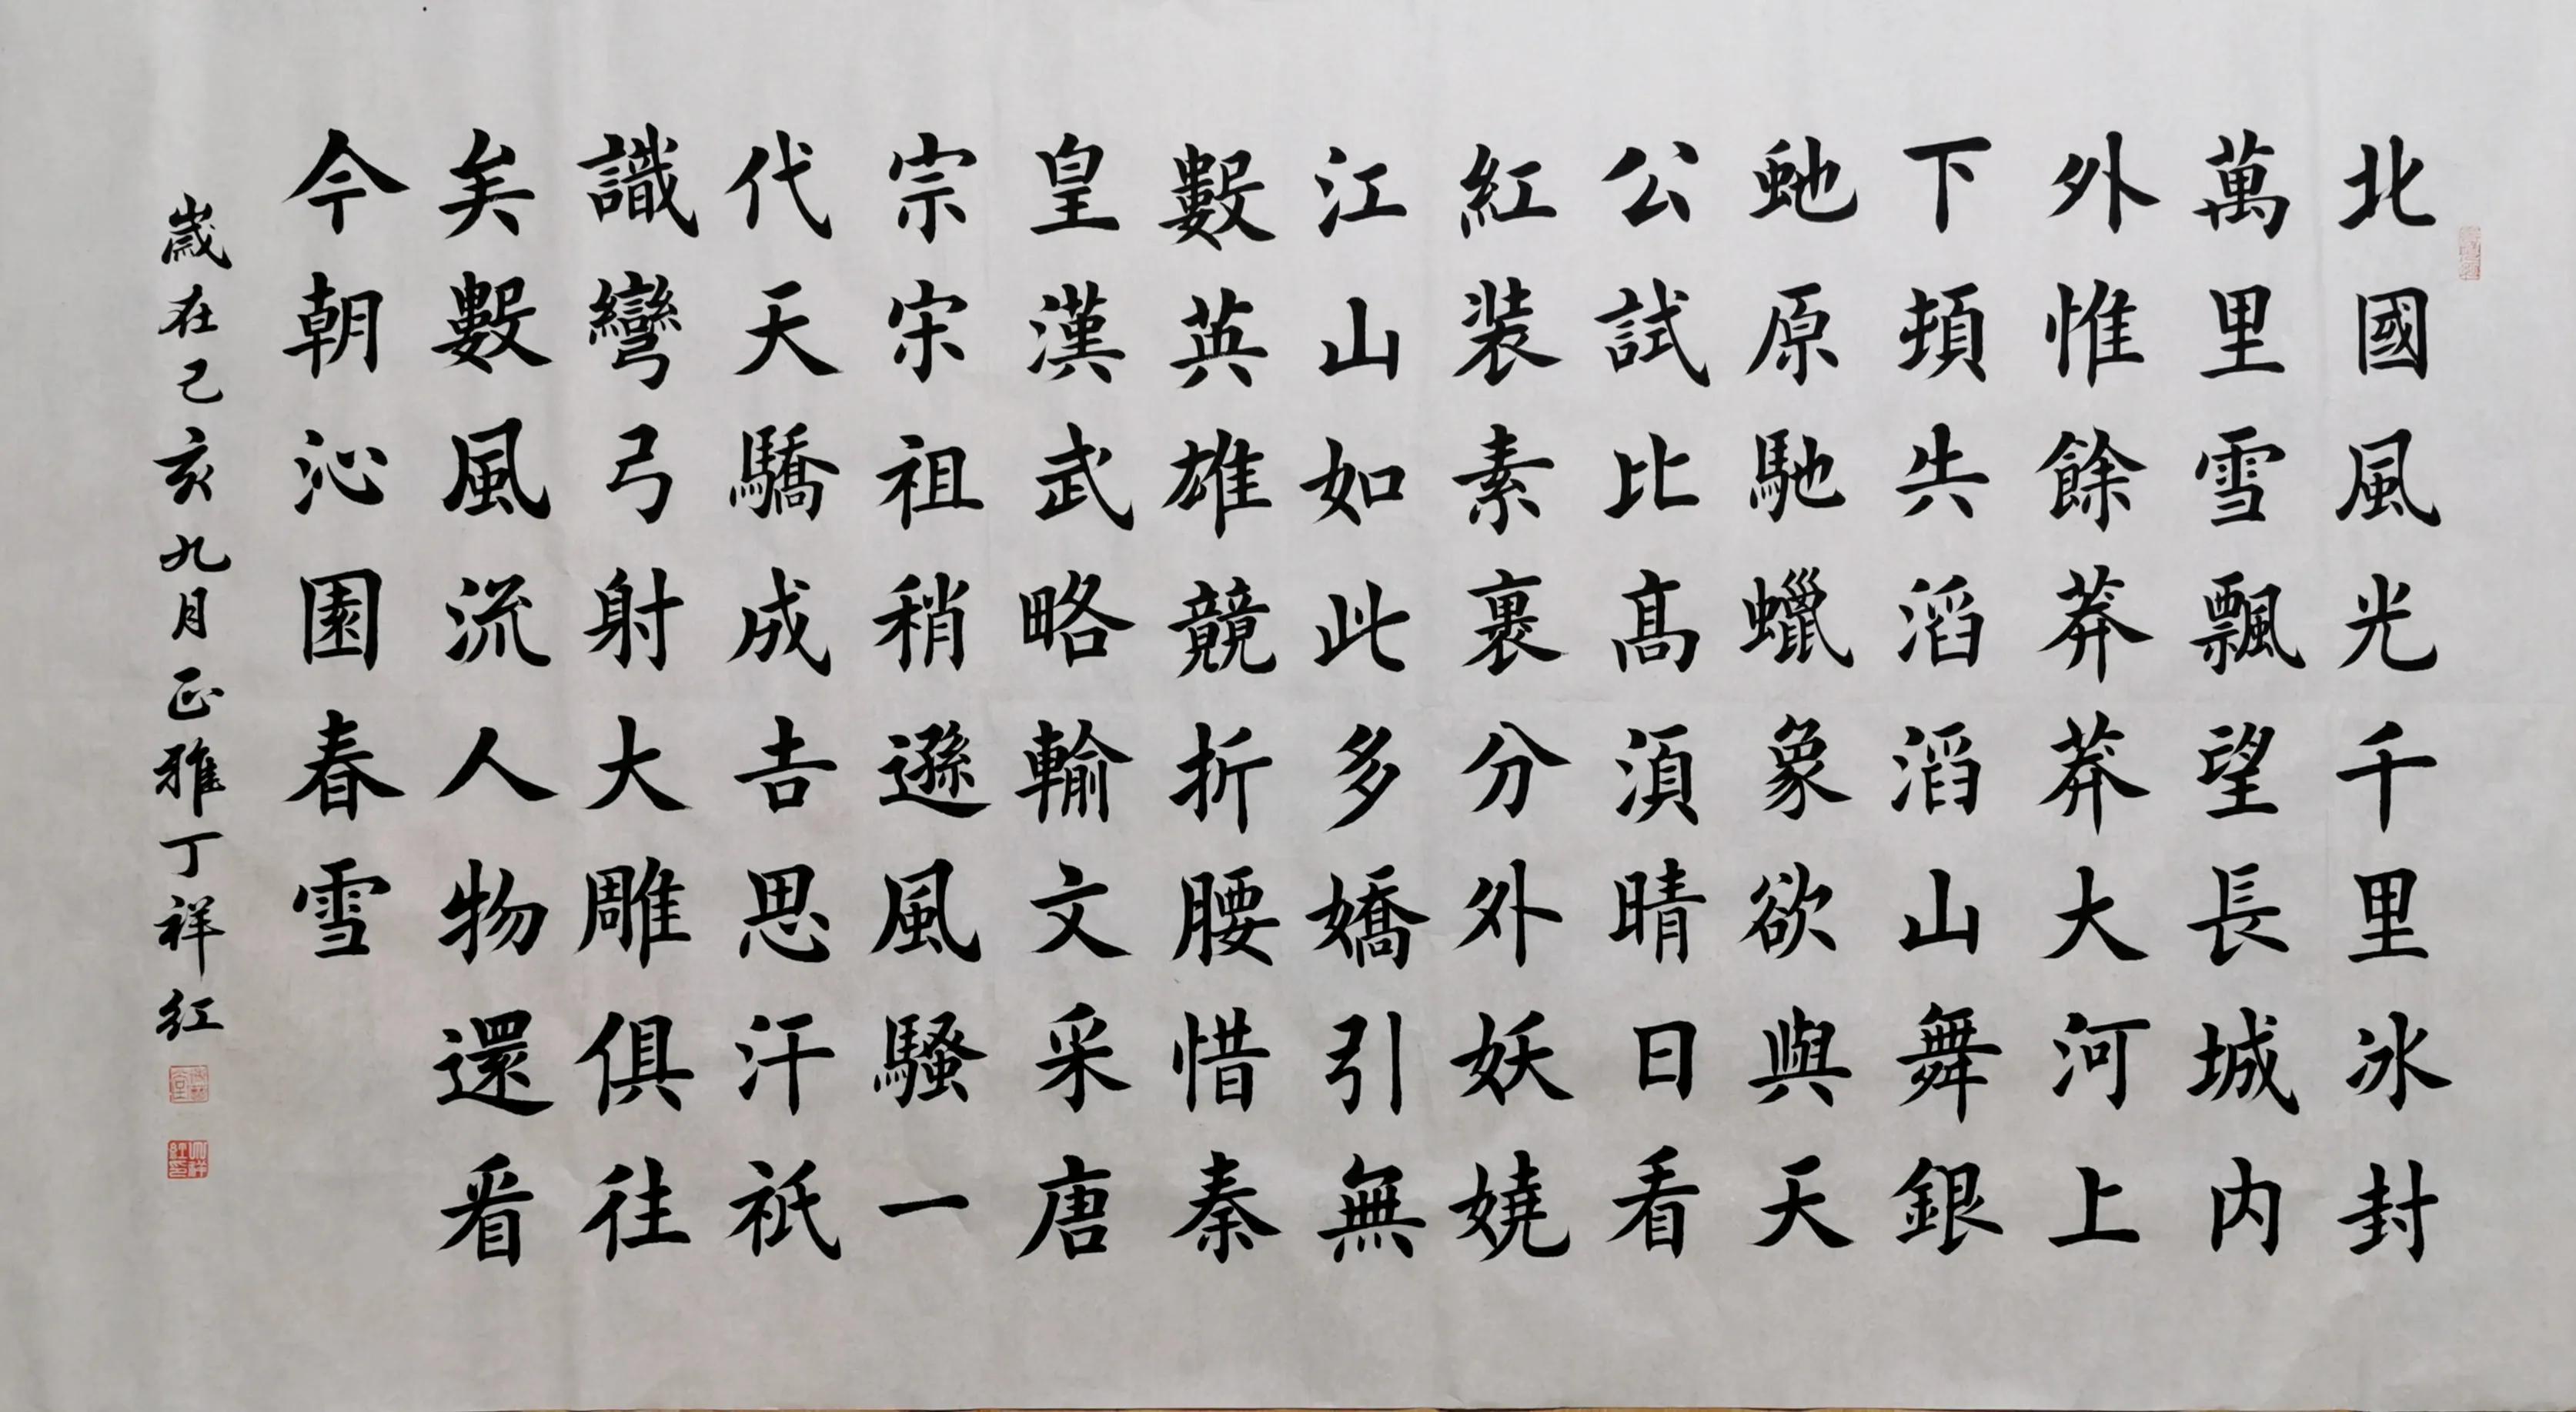 北國風光千里冰封
萬里雪飄望長城内
外惟餘莽莽大河上
下頓失滔滔山舞銀
虵原馳蠟象欲與天
公試比髙湏晴日看
紅装素裹分外妖嬈
江山如此多嬌引無
數英雄競折腰惜秦
皇漢武略輸文采唐
宗宋祖稍遜風騷一
代天驕成吉思汗祇
識彎弓射大雕俱往
矣數風流人物還看
今朝沁園春雪
歲在己亥九月正雅丁祥紅